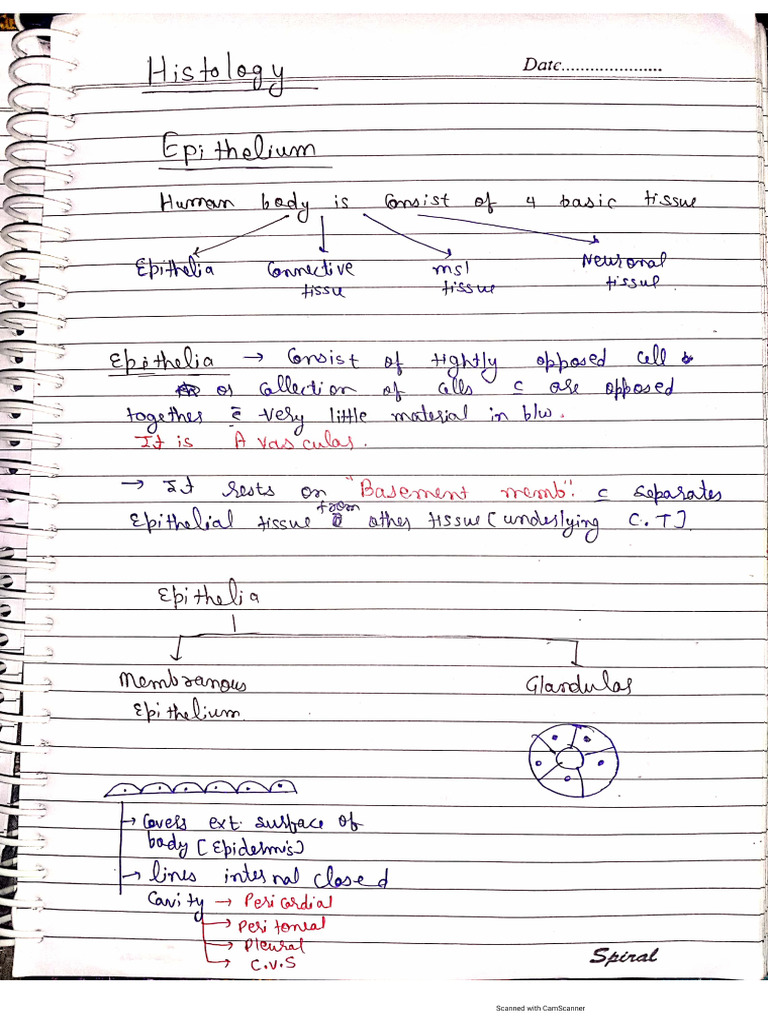 Histology
Date......................
Epithelium
Human body is Consist of 4 basic tissue
Epithelia Connective tissue msl tissue Neuronal tissue
Epithelia → Consist of tightly opposed cell
or collection of cells c are opposed
together c̄ very little material in b/w.
It is Avascular.
→ It rests on "Basement memb". c separates
Epithelial tissue from other tissue [underlying C.T]
Epithelia
Membranous Epithelium
Glandular
→ Covers ext. surface of
body [Epidermis]
→ lines internal closed
Cavity → Pericardial
→ Peritoneal
→ Pleural
→ C.V.S
Spiral
Scanned with CamScanner